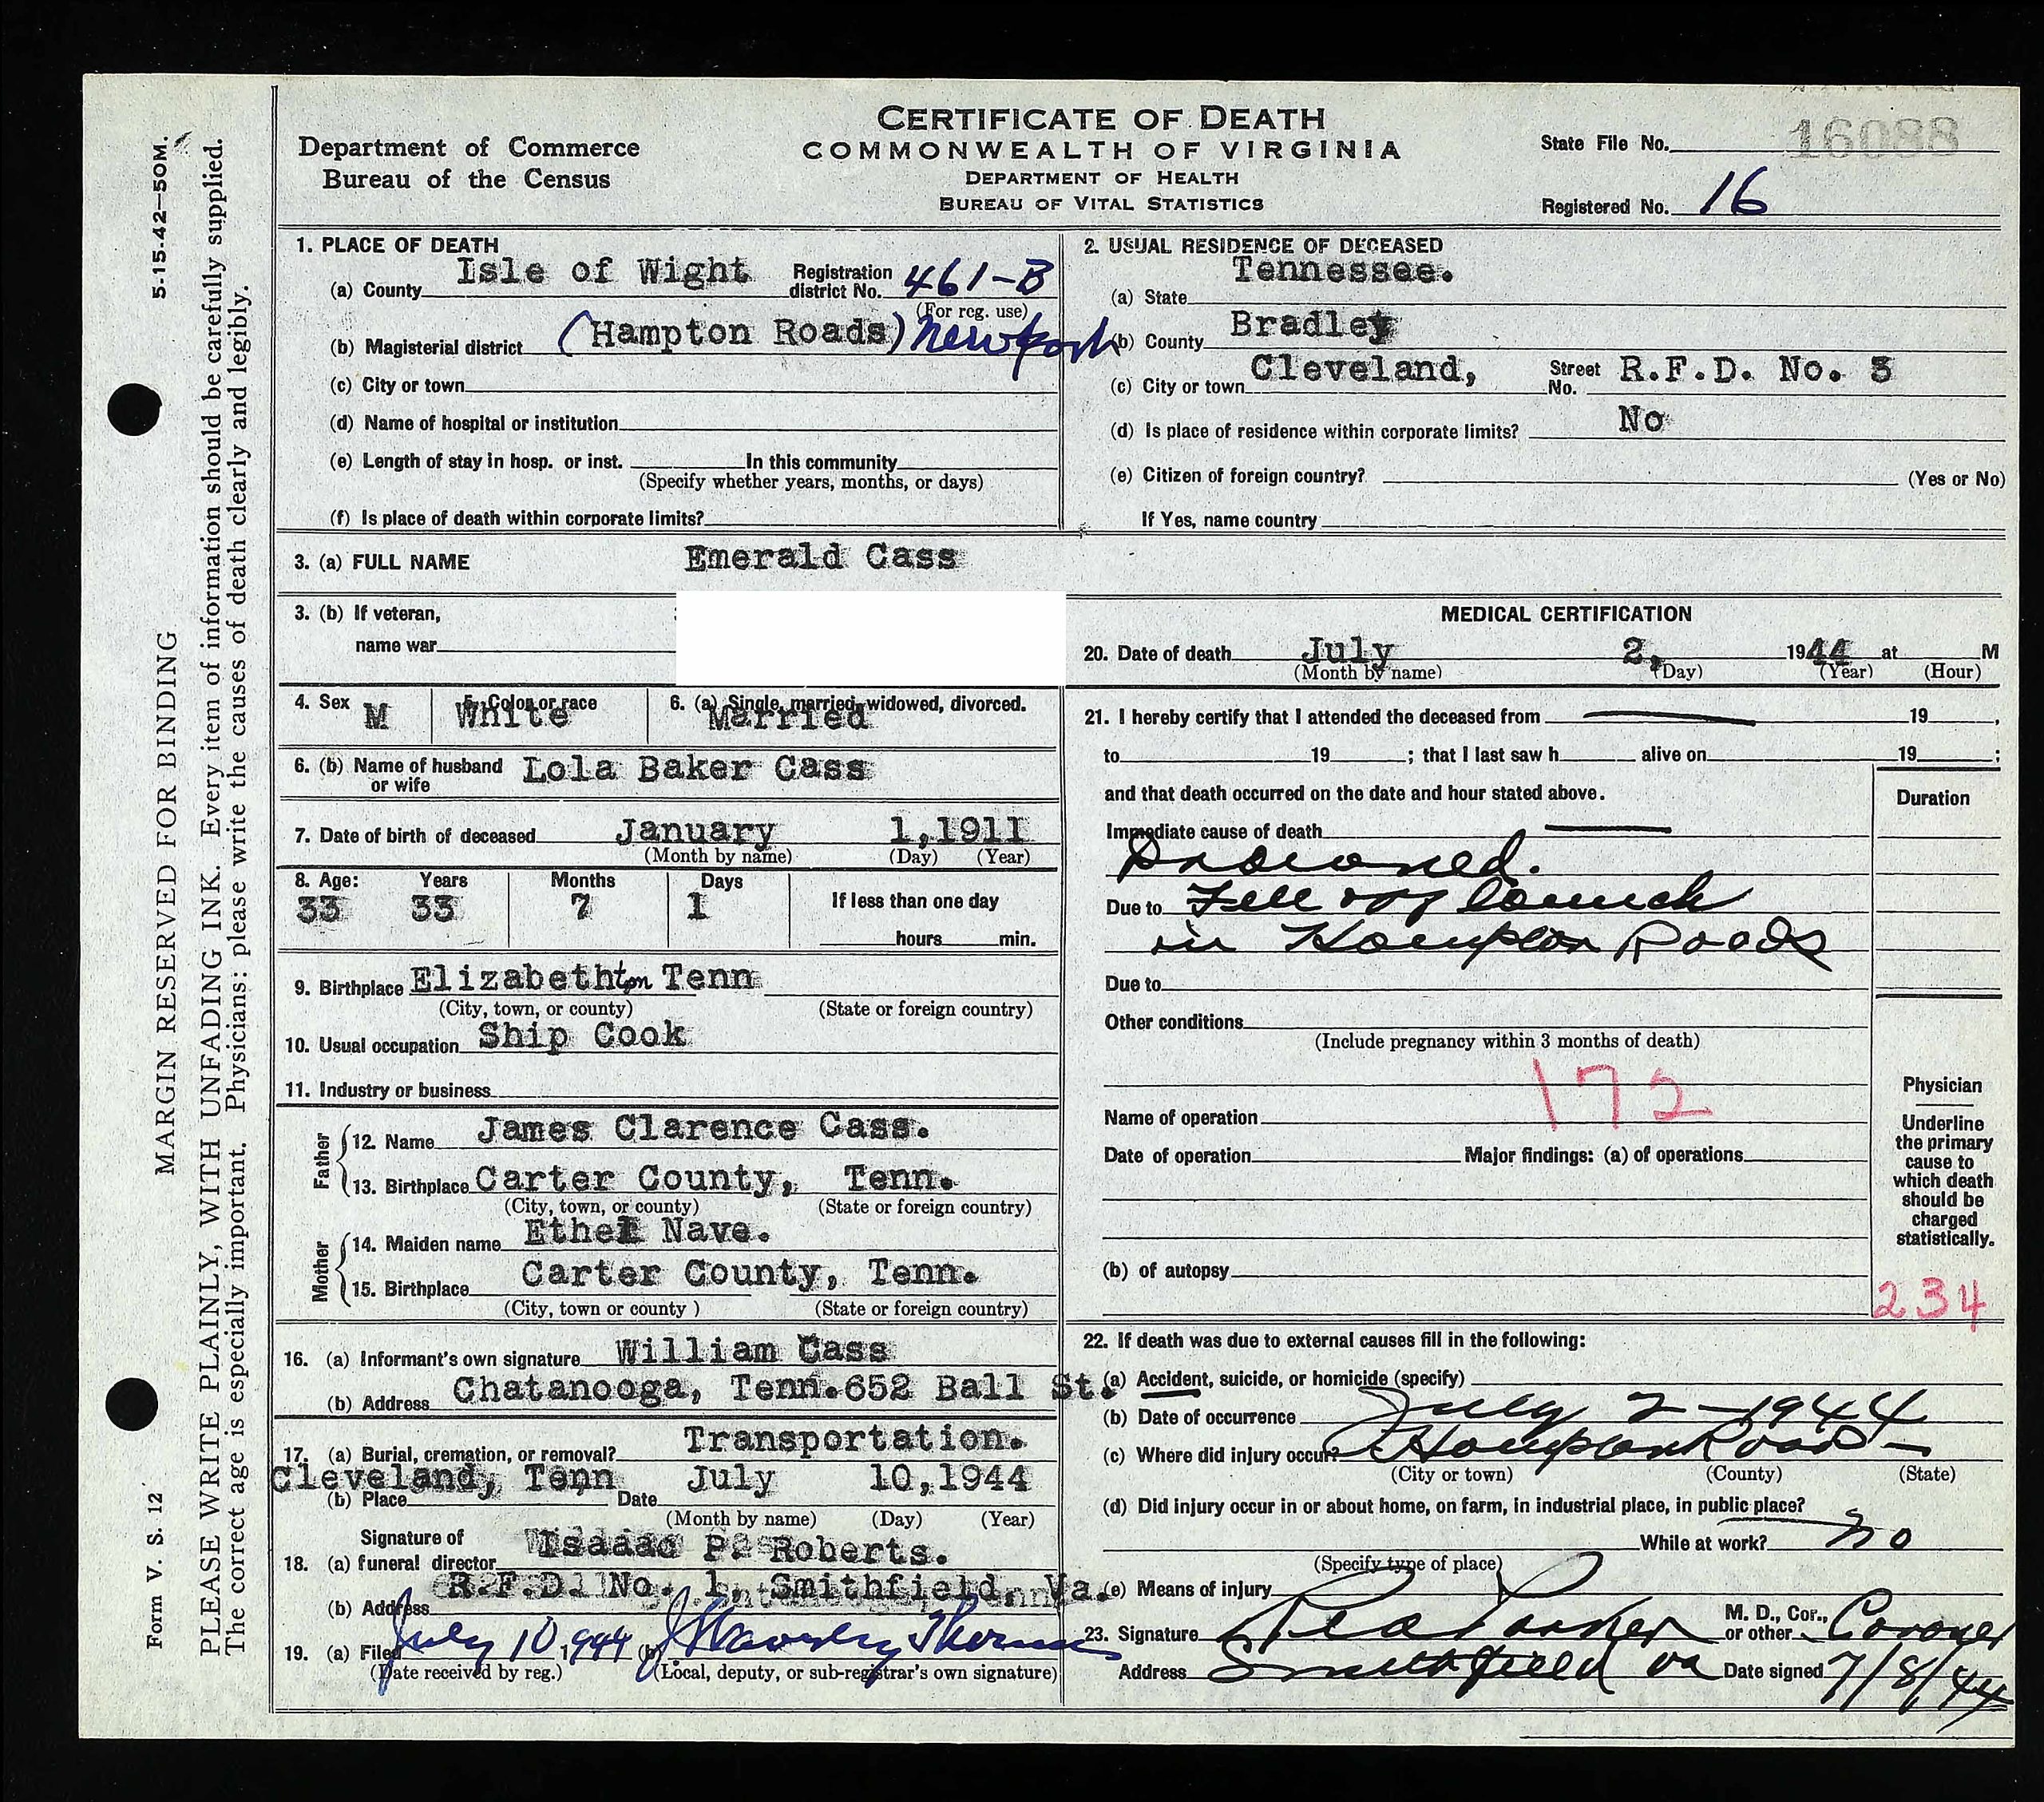 CERTIFICATE OF DEATH
COMMONWEALTH OF VIRGINIA
DEPARTMENT OF HEALTH
BUREAU OF VITAL STATISTICS
Department of Commerce
Bureau of the Census
State File No. 16088
Registered No. 16
5-15-42—50M.
MARGIN RESERVED FOR BINDING
PLEASE WRITE PLAINLY, WITH UNFADING INK. Every item of information should be carefully supplied.
The correct age is especially important. Physicians: please write the causes of death clearly and legibly.
Form V. S. 12
1. PLACE OF DEATH
(a) County Isle of Wight Registration district No. 461-B
(For reg. use)
(b) Magisterial district (Hampton Roads) Newport
(c) City or town
(d) Name of hospital or institution
(e) Length of stay in hosp. or inst. In this community
(Specify whether years, months, or days)
(f) Is place of death within corporate limits?
2. USUAL RESIDENCE OF DECEASED
(a) State Tennessee.
(b) County Bradley
(c) City or town Cleveland, Street No. R.F.D. No.
(d) Is place of residence within corporate limits? No
(e) Citizen of foreign country? (Yes or No)
If Yes, name country
3. (a) FULL NAME Emerald Cass
3. (b) If veteran,
name war
4. Sex M 5. Color or race White 6. (a) Single, married, widowed, divorced. Married
6. (b) Name of husband or wife Lola Baker Cass
7. Date of birth of deceased January 1,1911
(Month by name) (Day) (Year)
8. Age: Years Months Days If less than one day
33 33 7 1
hours min.
9. Birthplace Elizabethton Tenn
(City, town, or county) (State or foreign country)
10. Usual occupation Ship Cook
11. Industry or business
Father
12. Name James Clarence Cass.
13. Birthplace Carter County, Tenn.
(City, town, or county) (State or foreign country)
Mother
14. Maiden name Ethel Nave.
15. Birthplace Carter County, Tenn.
(City, town or county ) (State or foreign country)
16. (a) Informant's own signature William Cass
(b) Address Chatanooga, Tenn.652 Ball St.
17. (a) Burial, cremation, or removal? Transportation.
(b) Place Cleveland, Tenn Date July 10,1944
(Month by name) (Day) (Year)
18. (a) Signature of funeral director Isaaac P. Roberts.
(b) Address R.F.D. No. 1, Smithfield, Va.
19. (a) Filed July 10, 1944 (b) J Waverly Thomas
(Date received by reg.) (Local, deputy, or sub-registrar's own signature)
MEDICAL CERTIFICATION
20. Date of death July 2, 1944 at M
(Month by name) (Day) (Year) (Hour)
21. I hereby certify that I attended the deceased from 19 ,
to 19 ; that I last saw h alive on 19 ;
and that death occurred on the date and hour stated above.
Duration
Immediate cause of death
Drowned.
Due to Fell off launch
in Hampton Roads
Due to
Other conditions
(Include pregnancy within 3 months of death)
172
Name of operation
Date of operation Major findings: (a) of operations
(b) of autopsy
Physician
Underline
the primary
cause to
which death
should be
charged
statistically.
234
22. If death was due to external causes fill in the following:
(a) Accident, suicide, or homicide (specify)
(b) Date of occurrence July 2-1944
(c) Where did injury occur? Hampton Roads -
(City or town) (County) (State)
(d) Did injury occur in or about home, on farm, in industrial place, in public place?
While at work? No
(Specify type of place)
(e) Means of injury
23. Signature Parker M. D., Cor., or other Coroner
Address Smithfield Va Date signed 7/8/44